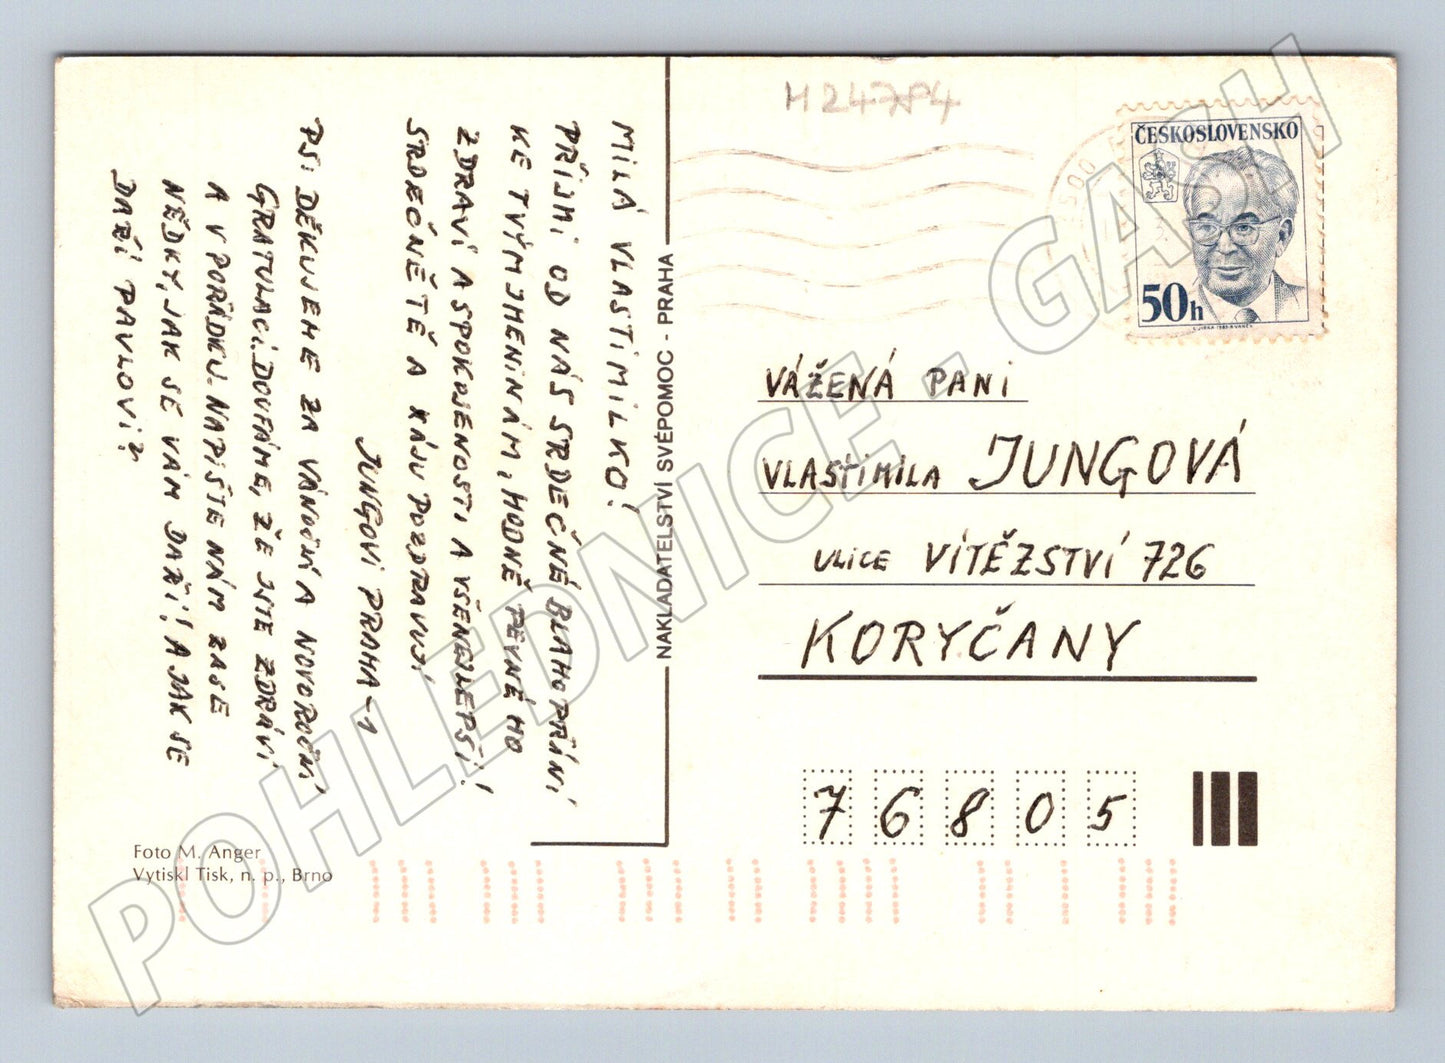 MILÁ VLASTIMILKO!
PŘIJMI OD NÁS SRDEČNÉ BLAHOPŘÁNÍ
KE TVÝM JMENINÁM, HODNĚ PEVNÉHO
ZDRAVÍ A SPOKOJENOSTI A VŠENEJLEPŠÍ!
SRDEČNĚ TĚ A KÁJU POZDRAVUJÍ
JUNGOVI PRAHA-1
PS: DĚKUJEME ZA VÁNOČNÍ A NOVOROČNÍ
GRATULACI. DOUFÁME, ŽE JSTE ZDRÁVÍ
A V POŘÁDKU. NAPIŠTE NÁM ZASE
NĚDKY, JAK SE VÁM DAŘÍ! A JAK SE
DAŘÍ PAVLOVI?
Foto M. Anger
Vytiskl Tisk, n. p., Brno
NAKLADATELSTVÍ SVÉPOMOC - PRAHA
H24784
ČESKOSLOVENSKO
50h
VÁŽENÁ PANI
VLASTIMILA JUNGOVÁ
ULICE VÍTĚZSTVÍ 726
KORYČANY
76805
POHLEDNICE - GASH